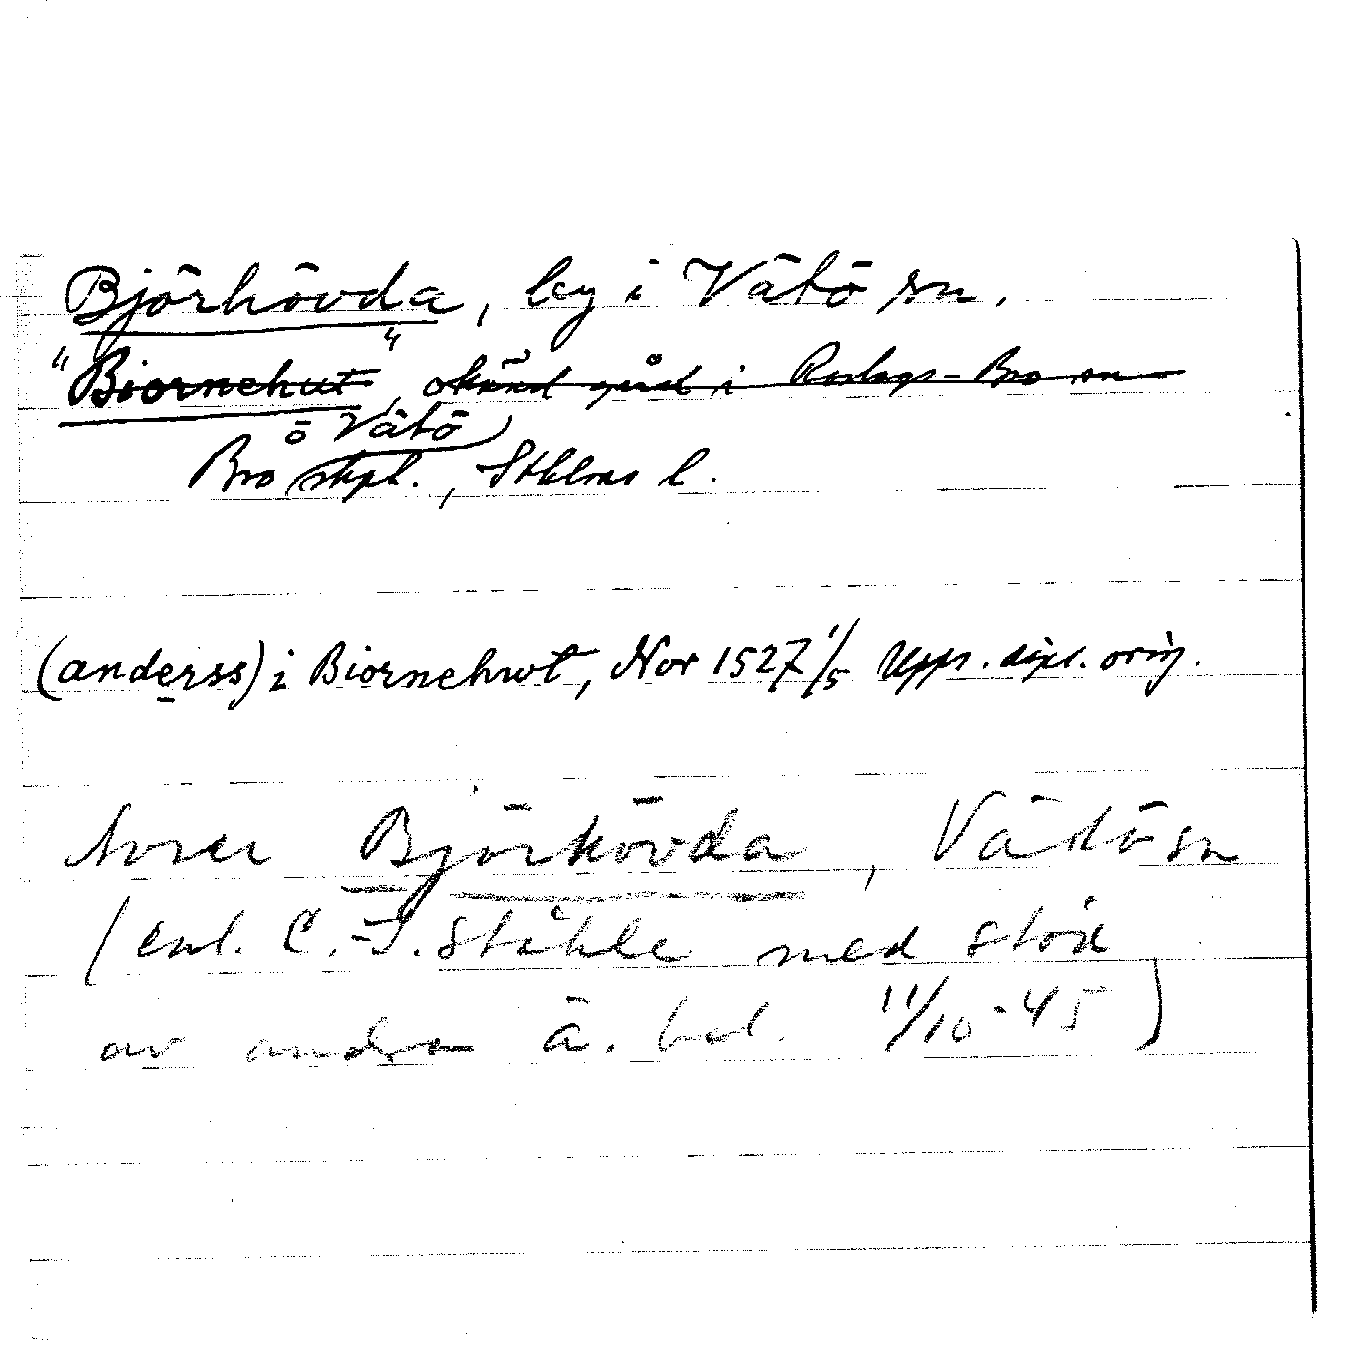 Björhövda, by i Vätö sn.
"Biornehut", okänd gård i Roslags-Bro sn
ö Vätö
Bro skpl., Sthlms l.
(anderss) i Biornehwt, Nor 1527 1/5 Upps. dipl. orig.
Avser Björhövda, Vätö sn
(enl. C.-I. Ståhle med stöd
av andra ä. bel. 11/10-45)